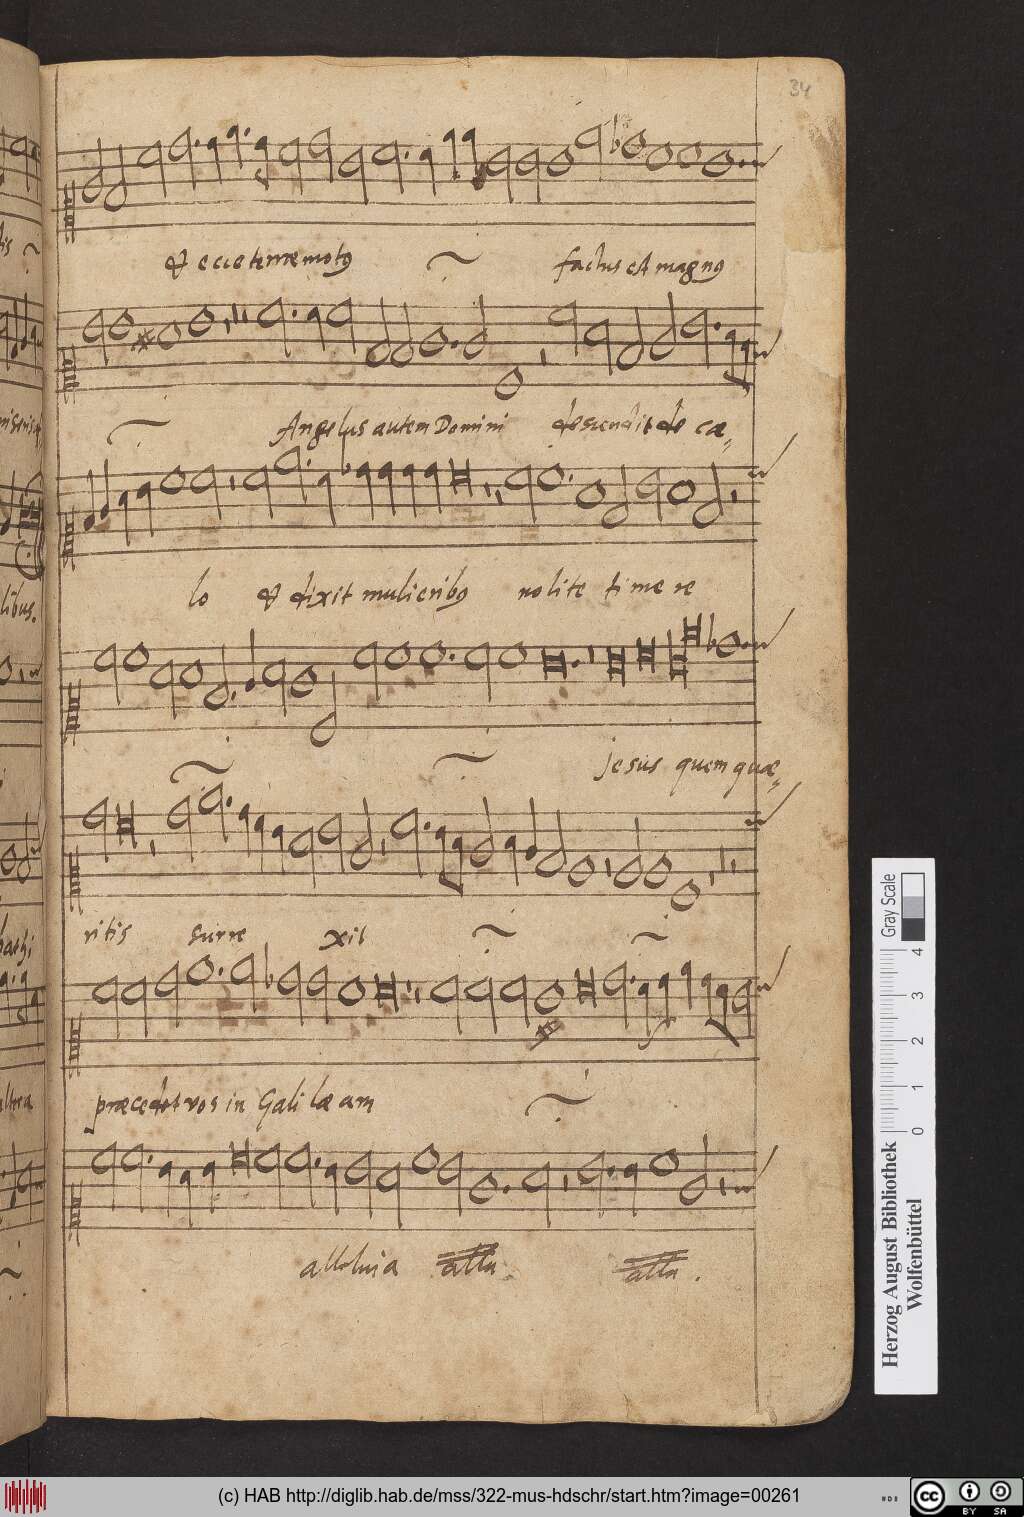 34
& ecce terræmotꝰ factus est magnꝰ
Angelus autem Domini descendit de cæ=
lo & dixit mulieribꝰ nolite timere
jesus quem quæ=
ritis surrexit
præcedet vos in Galilæam
alleluia alla alla.
tis
libus.
Gray Scale
0 1 2 3 4
Herzog August Bibliothek
Wolfenbüttel
(c) HAB http://diglib.hab.de/mss/322-mus-hdschr/start.htm?image=00261
cc BY SA